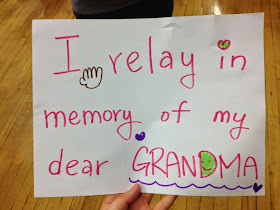 I relay in
memory of my
dear GRANDMA